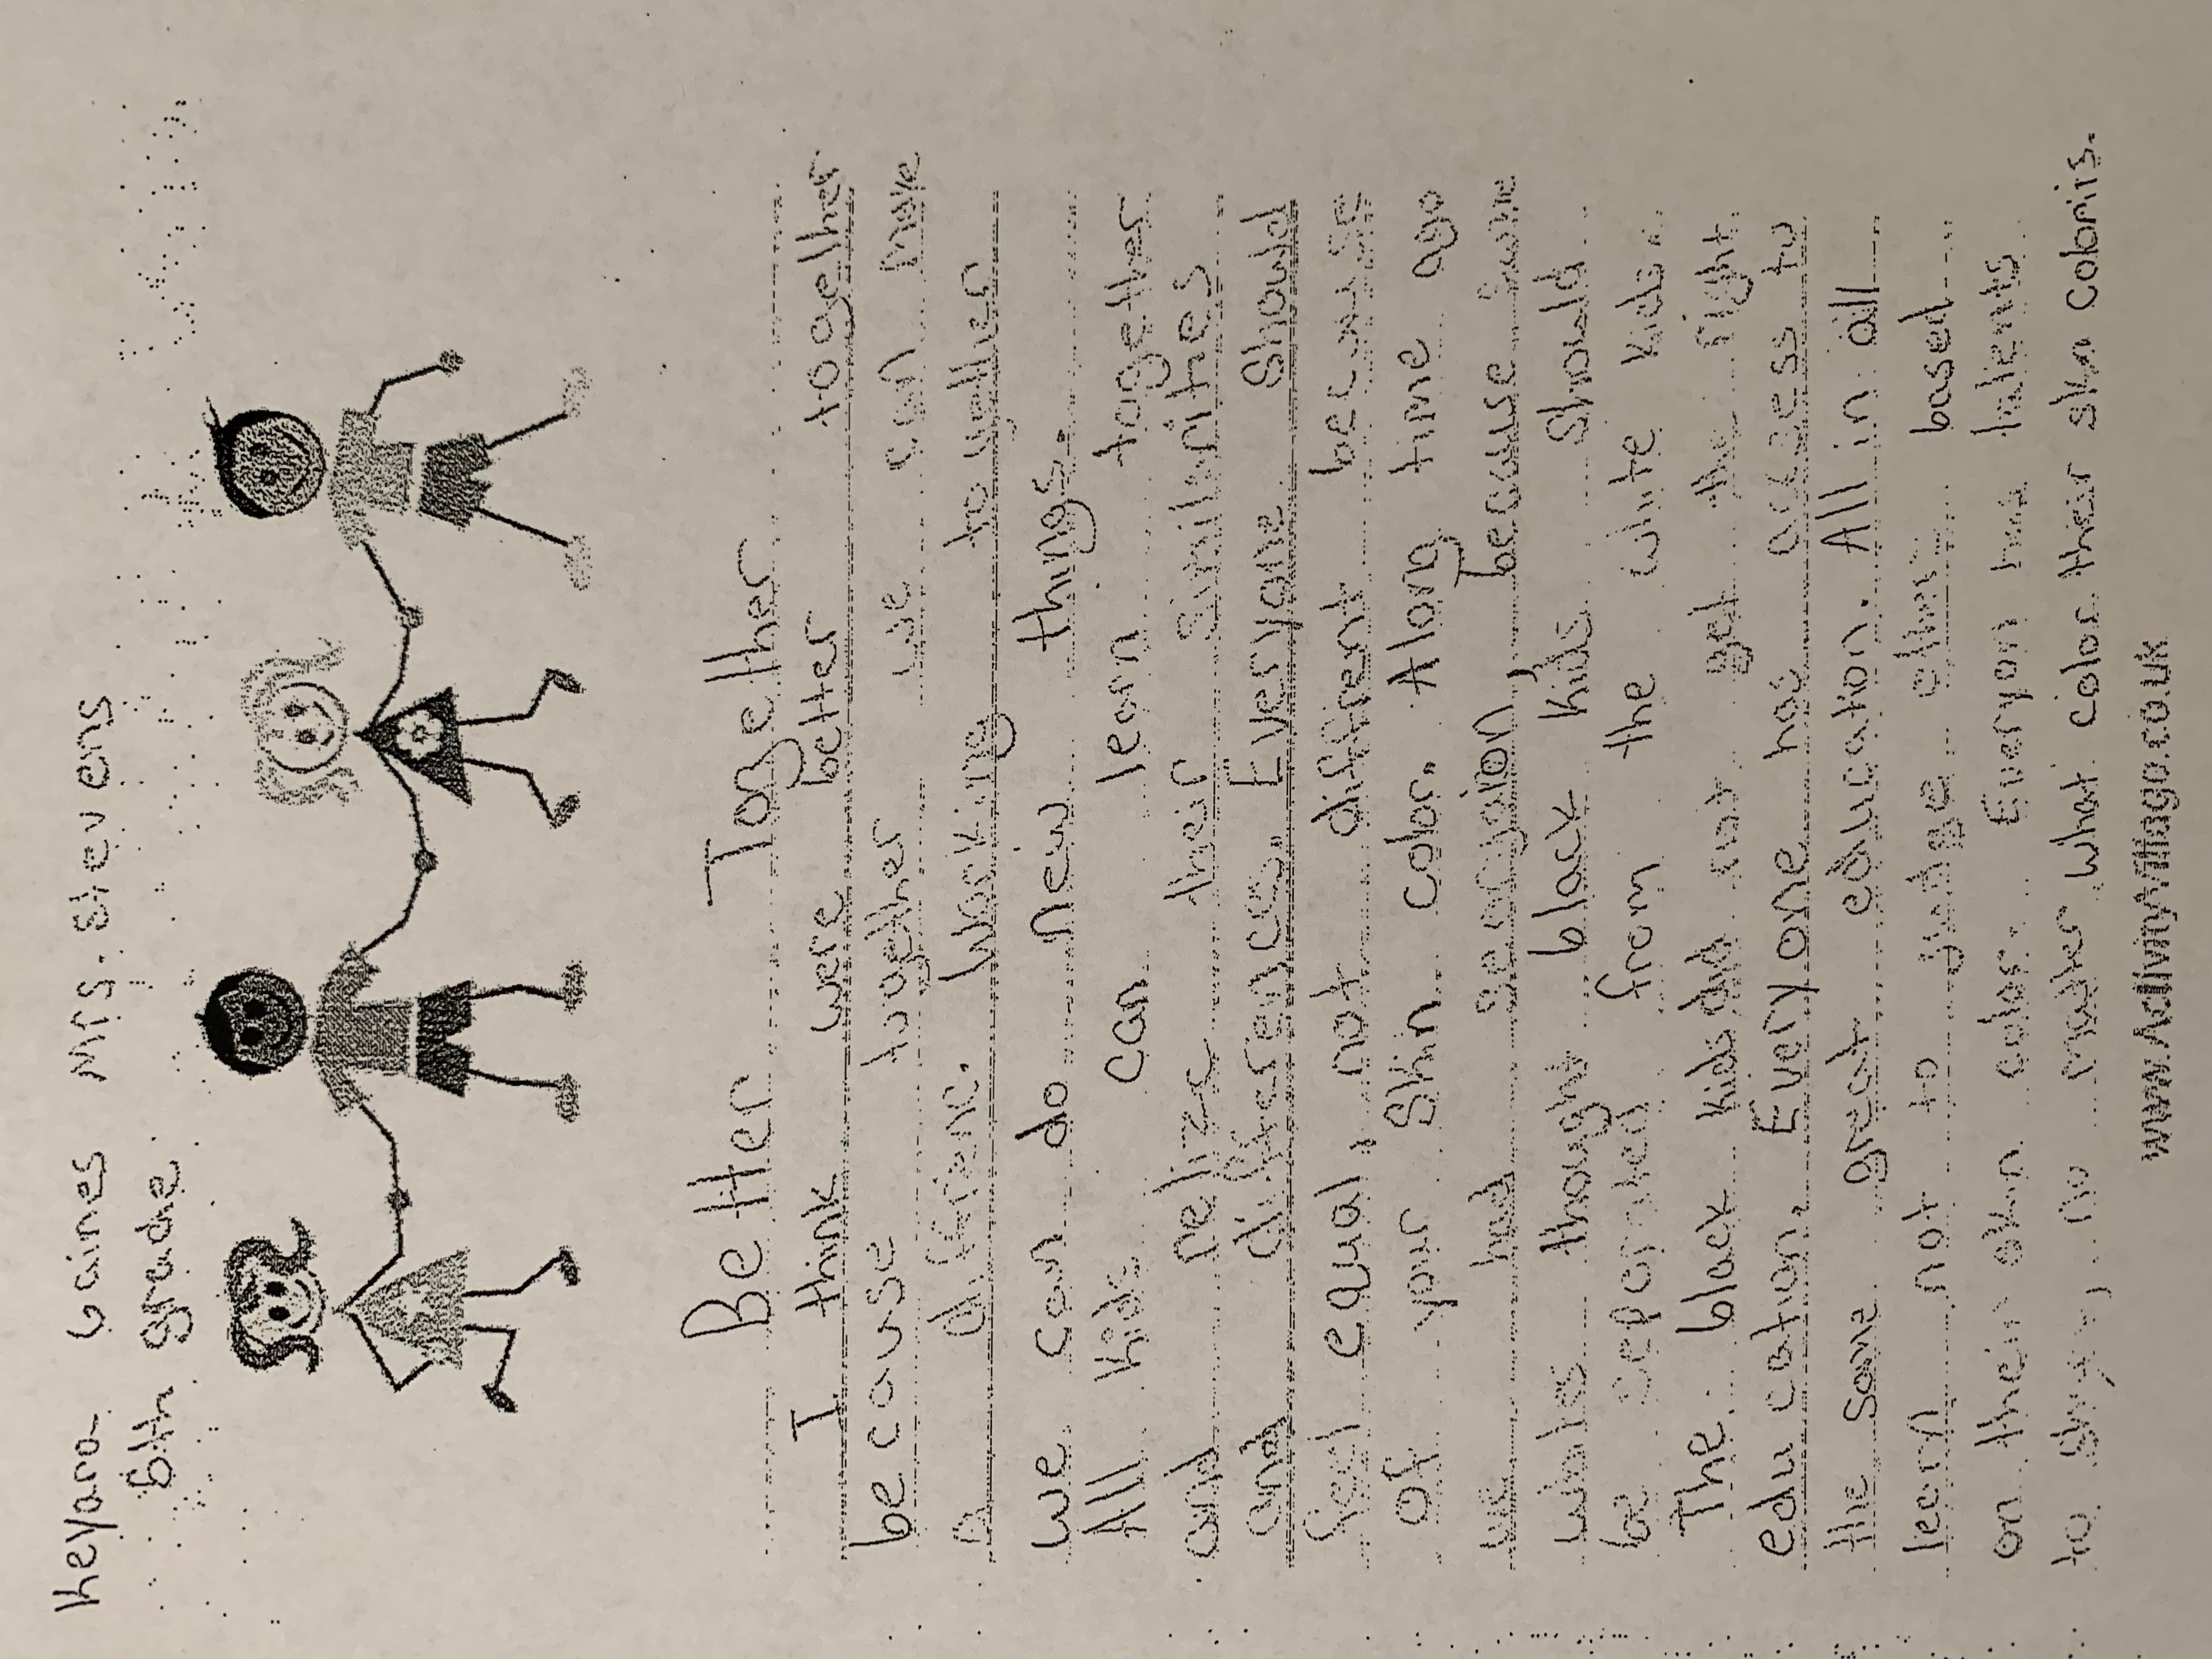 Keyara Gaines Mrs. Stevens
6th grade
Better Together
I think were better together
because together we can make
a difference. Working together
we can do new things.
All kids can learn together
and relize their similarities
and differences. Everyone should
feel equal, not diffrent because
of your skin color. Along time ago
we had segragion, because some
whites thought black kids should
be seperated from the white kids.
The black kids did not get the right
edu cation. Everyone has access to
the same great education. All in all
learn not to judge others based
on their skin color. Everyon has talents
to share, no matter what color their skin coloris.
www.ActivityVillage.co.uk